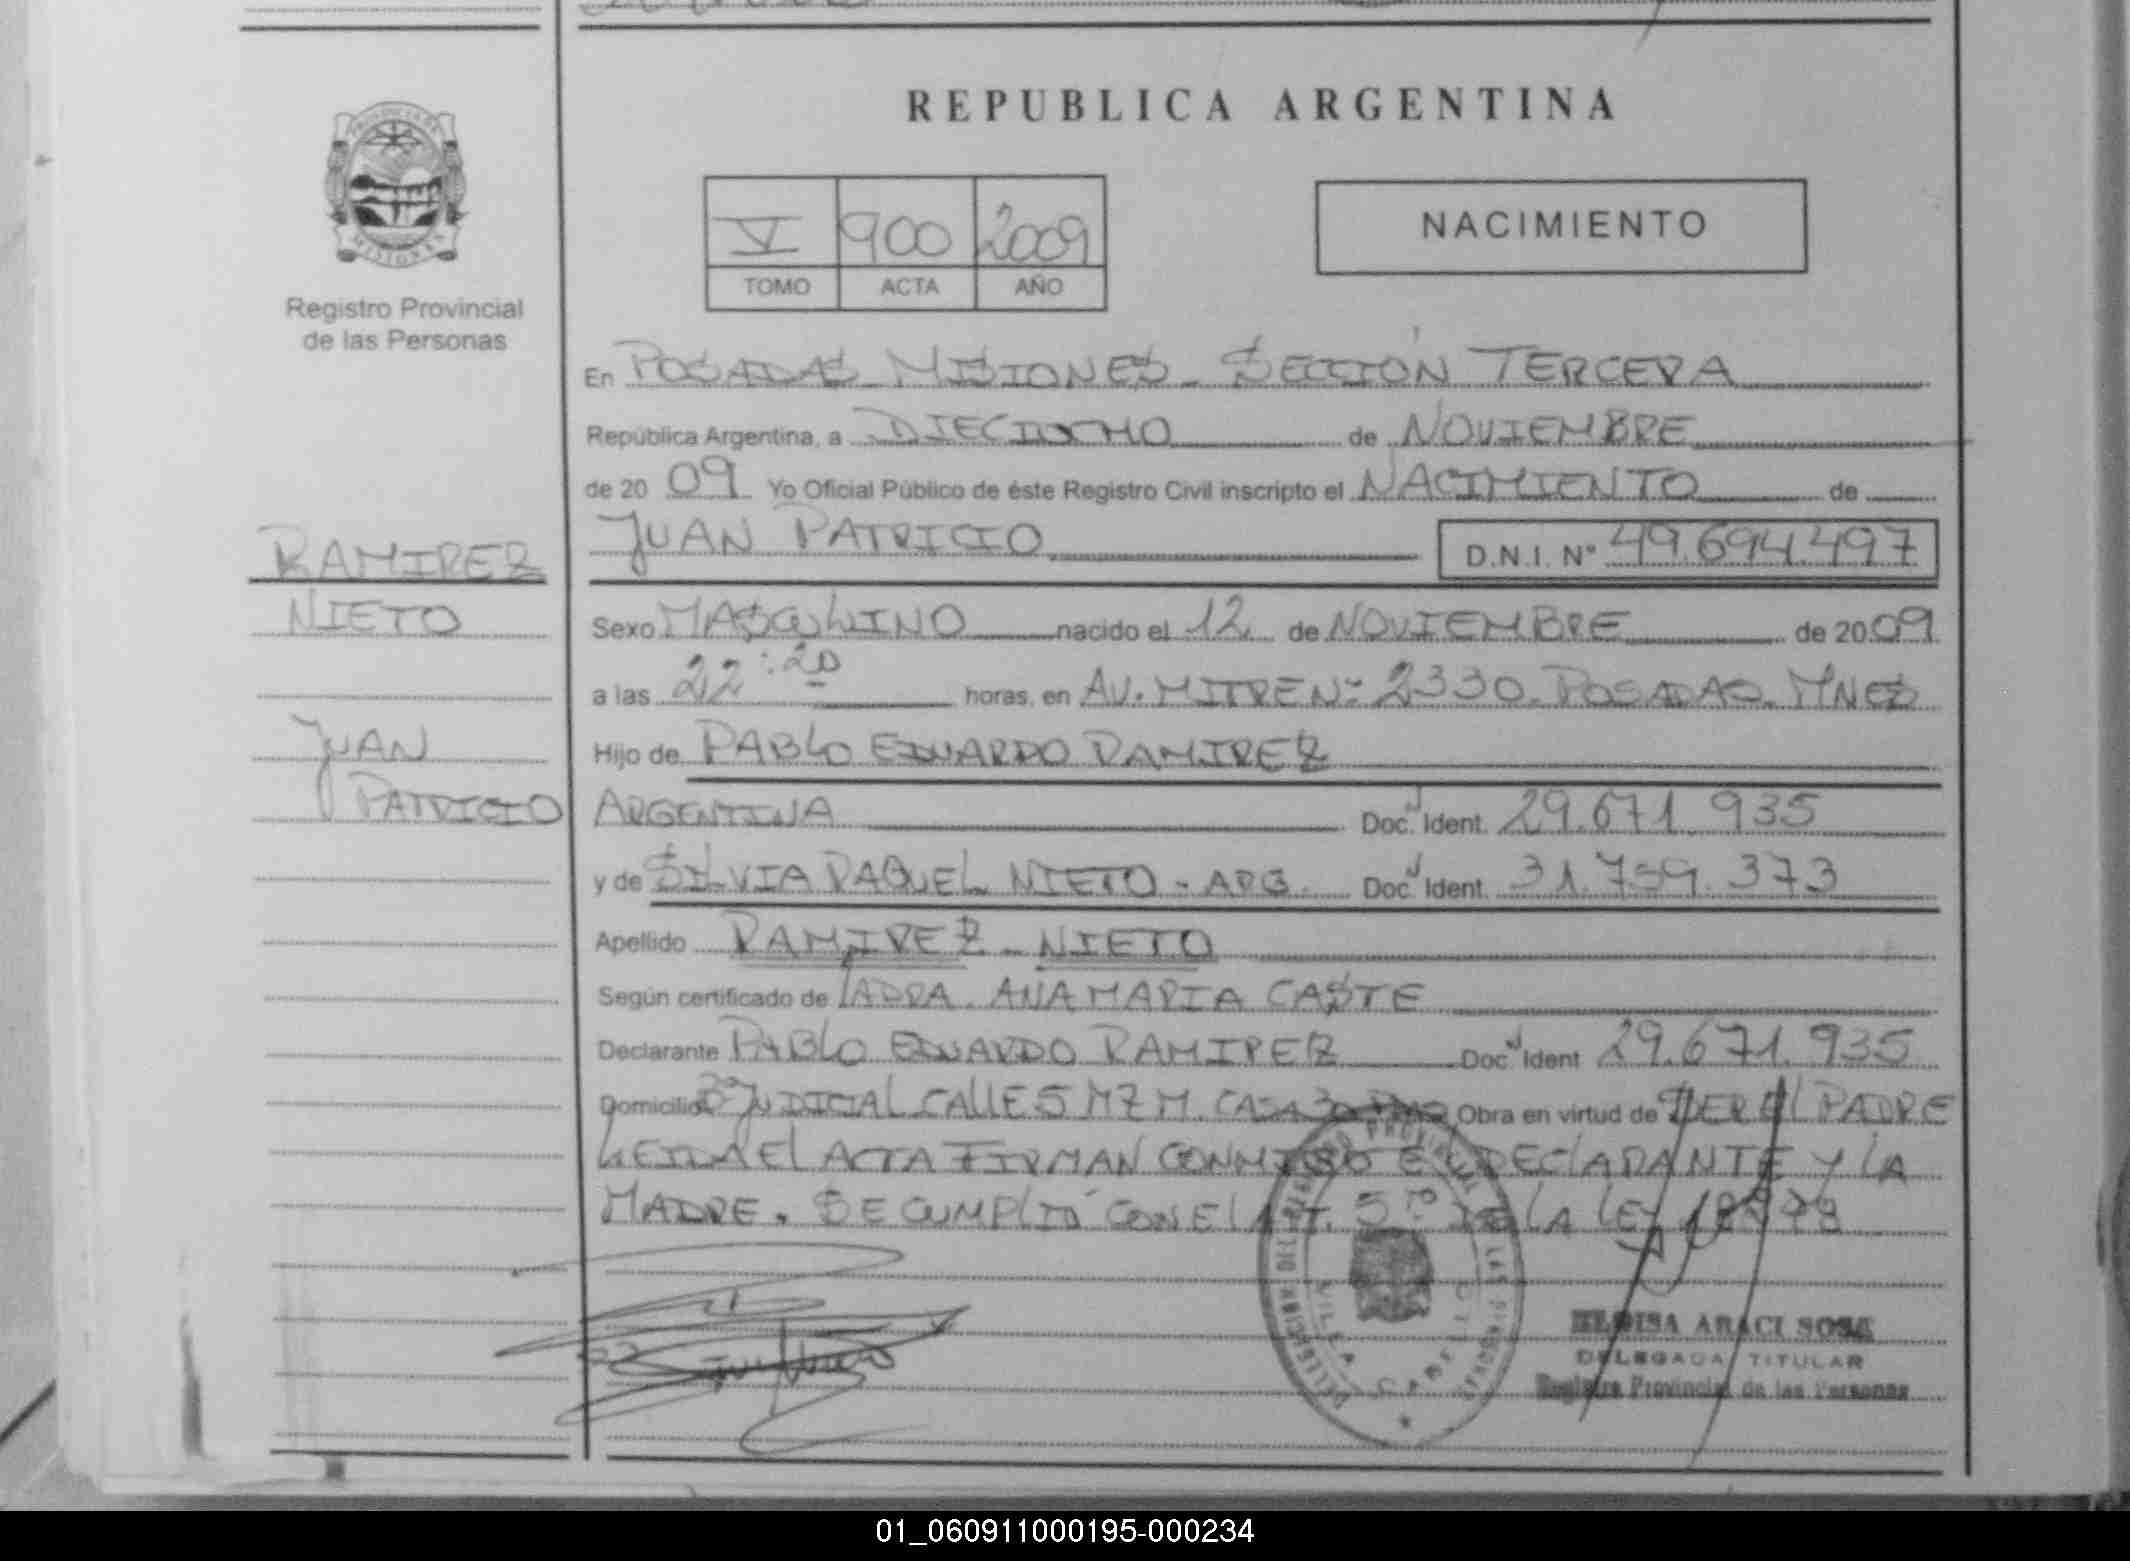 REPUBLICA ARGENTINA
PROVINCIA DE
MISIONES
Registro Provincial
de las Personas
V 900 2009
TOMO ACTA AÑO
NACIMIENTO
En POSADAS MISIONES - SECCIÓN TERCERA
República Argentina, a DIECIOCHO de NOVIEMBRE
de 20 09 Yo Oficial Público de éste Registro Civil inscripto el NACIMIENTO de
JUAN PATRICIO D.N.I. Nº 49.694.497
RAMIREZ
NIETO
JUAN
PATRICIO
Sexo MASCULINO nacido el 12 de NOVIEMBRE de 20 09
a las 22:20 horas, en AV. MITRE Nº 2330. POSADAS. MNES
Hijo de PABLO EDUARDO RAMIREZ
ARGENTINA Doc. Ident. 29.671.935
y de SILVIA RAQUEL NIETO - ARG. Doc. Ident. 31.759.373
Apellido RAMIREZ - NIETO
Según certificado de LA DRA. ANA MARIA CASTE
Declarante PABLO EDUARDO RAMIREZ Doc. Ident 29.671.935
Domicilio Bº JUDICIAL CALLE 5 MZ M. CASA Obra en virtud de SER EL PADRE
LEIDA EL ACTA FIRMAN CONMIGO EL DECLARANTE Y LA
MADRE. SE CUMPLIÓ CON EL ART. 5to DE LA LEY
ELOISA ARACI SOSA
DELEGADA TITULAR
Registro Provincial de las Personas
01_060911000195-000234